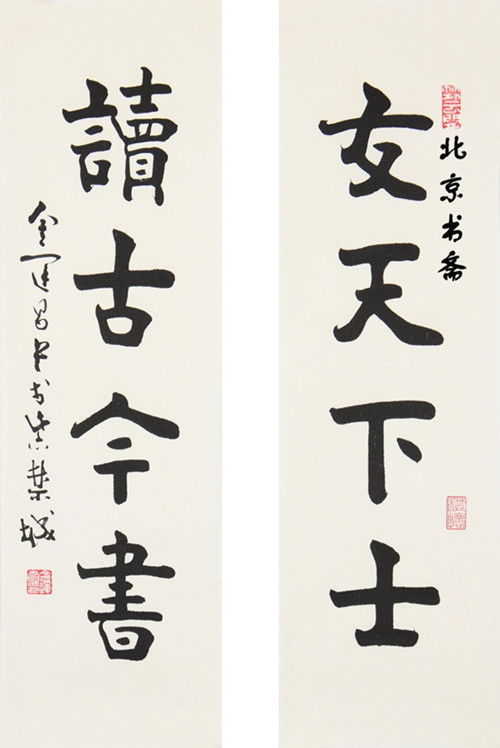 友天下士
北京书斋
讀古今書
金運昌书于紫禁城